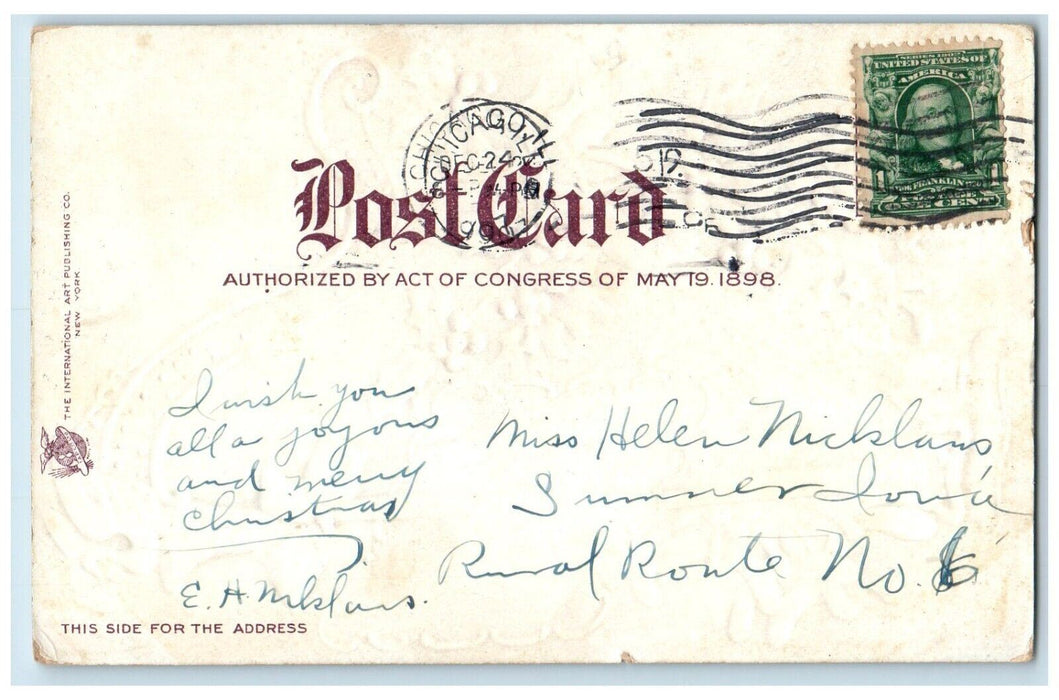 SERIES 1902
UNITED STATES OF
AMERICA
1
FRANKLIN
ONE CENT
CHICAGO, ILL.
DEC 24
4-PM
Post Card
AUTHORIZED BY ACT OF CONGRESS OF MAY 19. 1898.
THE INTERNATIONAL ART PUBLISHING CO.
NEW YORK
I wish you
all a joyous
and merry
Christmas
E. H. Nicklaus.
Miss Helen Nicklaus
Sumner Iowa
Rural Route No. 6
THIS SIDE FOR THE ADDRESS